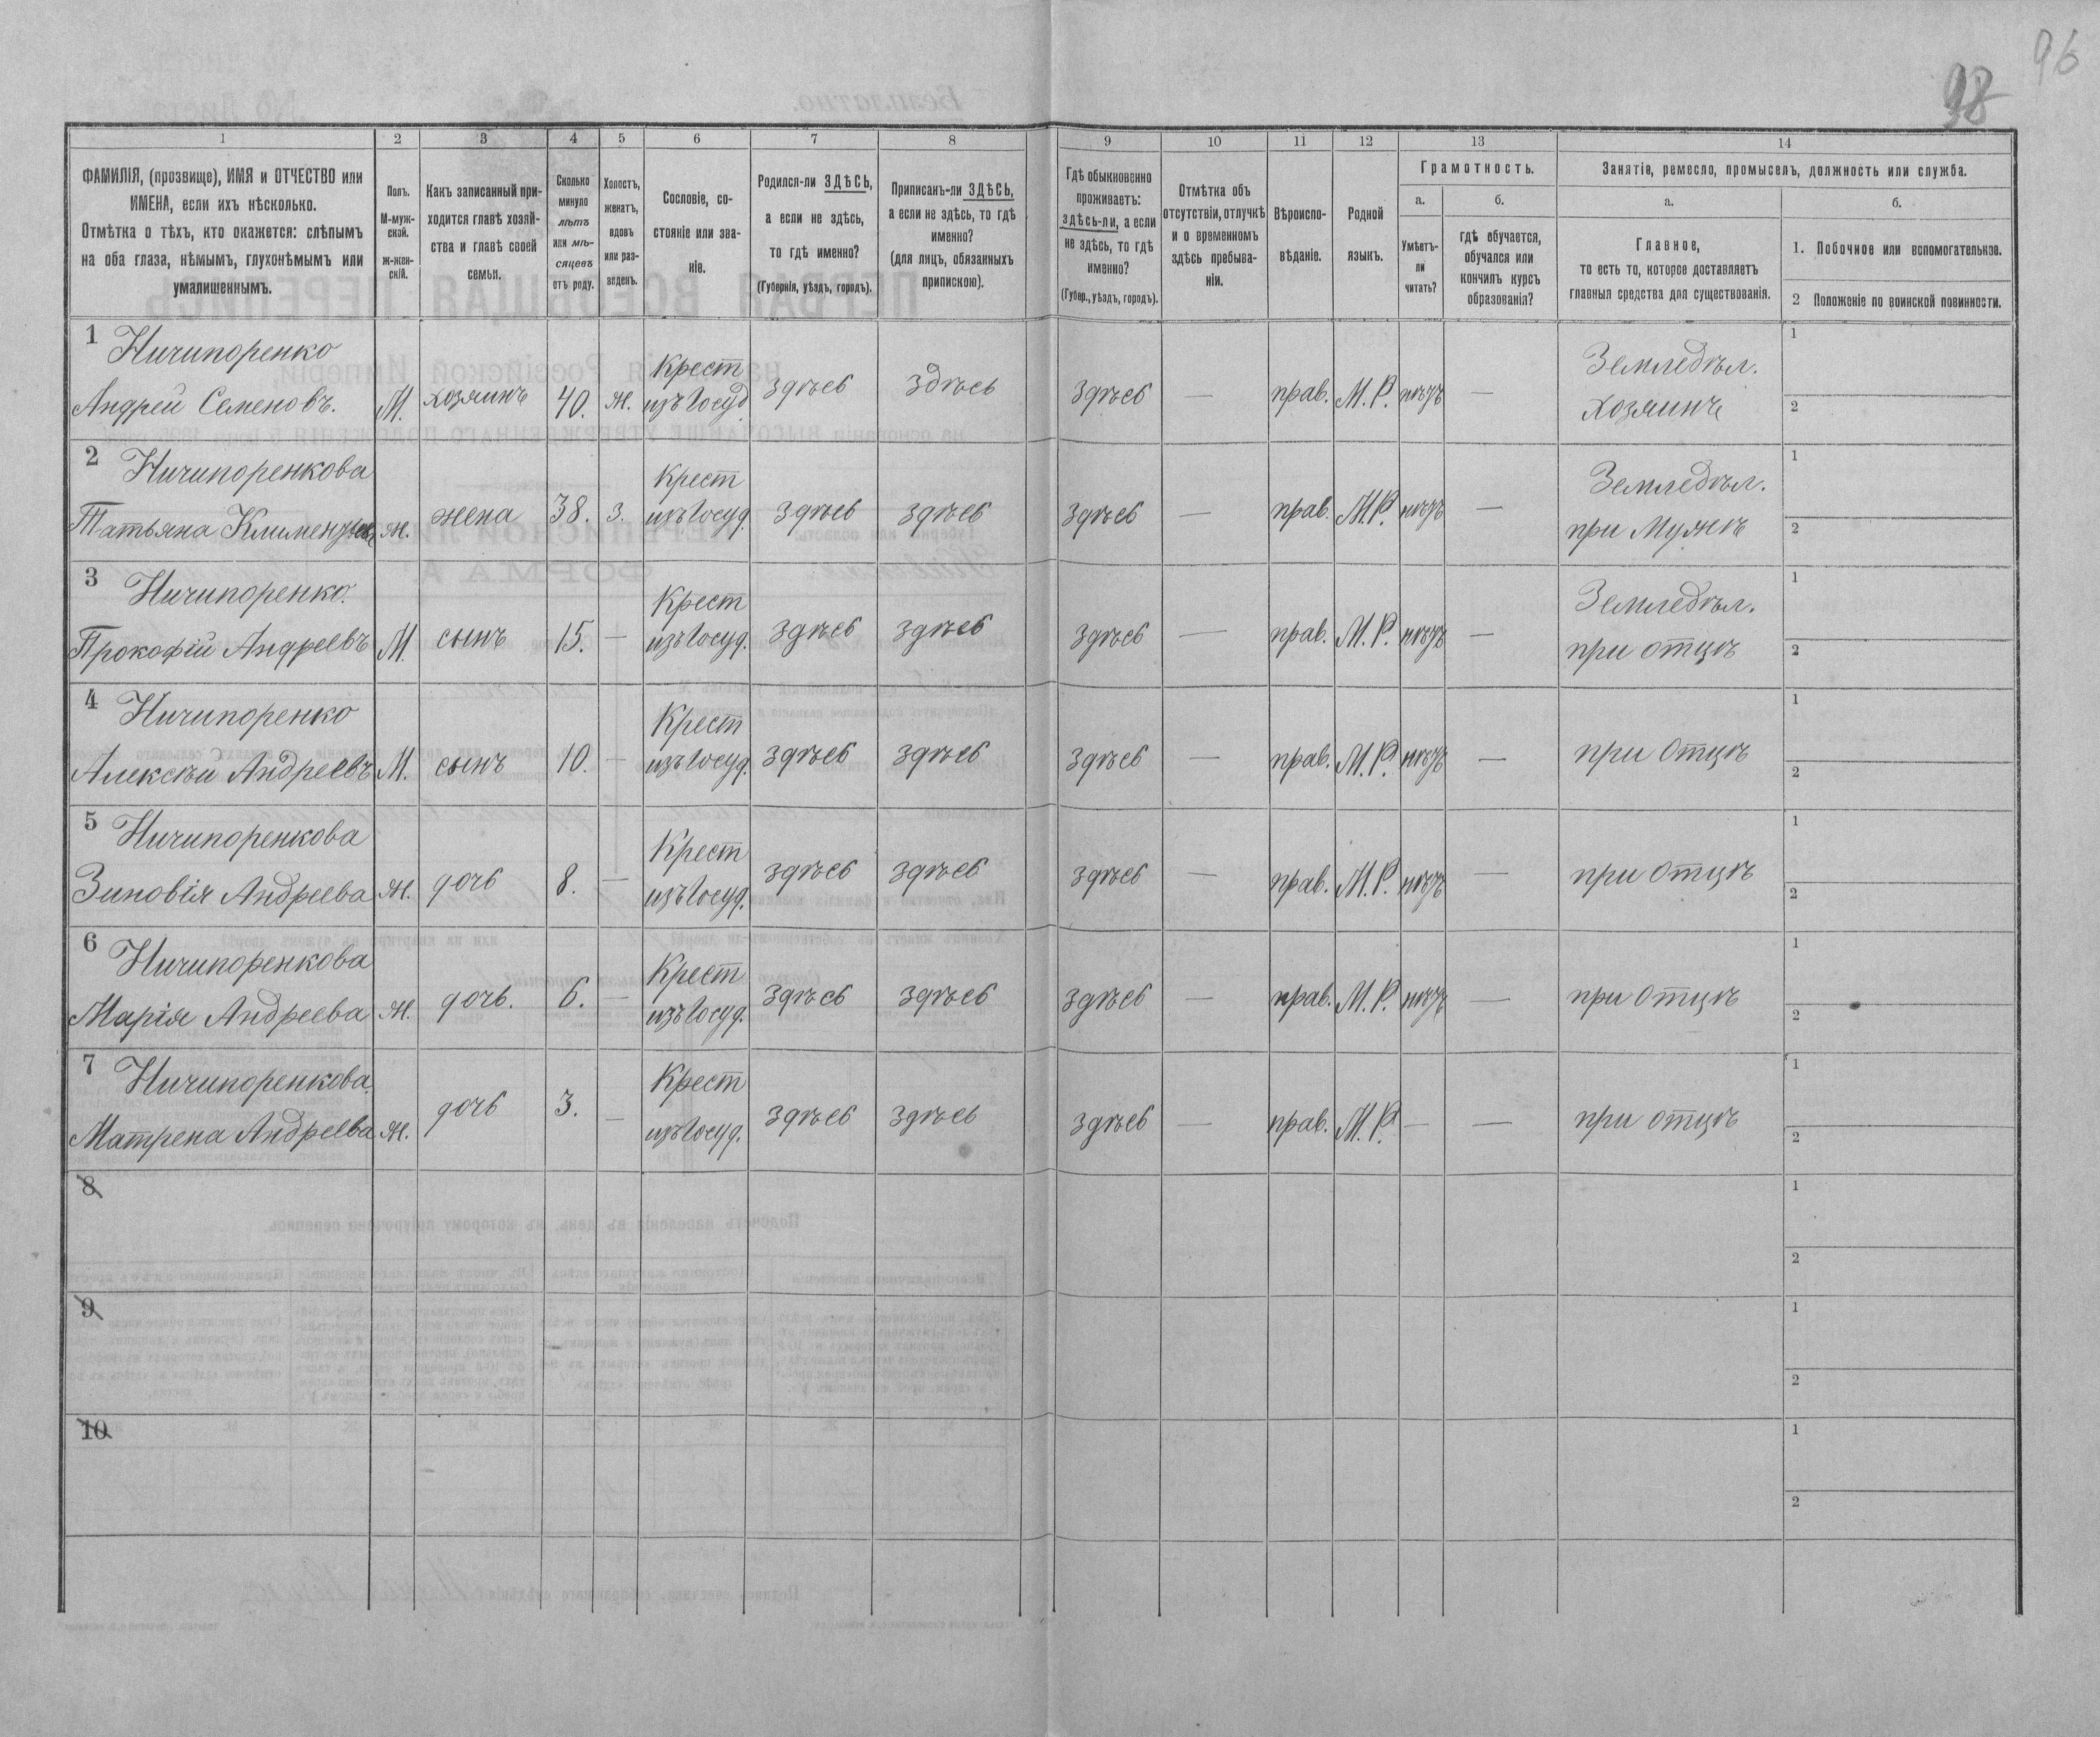 96
98
1 2 3 4 5 6 7 8 9 10 11 12 13 14
ФАМИЛІЯ, (прозвище), ИМЯ и ОТЧЕСТВО или
ИМЕНА, если ихъ нѣсколько.
Отмѣтка о тѣхъ, кто окажется: слѣпымъ
на оба глаза, нѣмымъ, глухонѣмымъ или
умалишеннымъ.
Полъ.
М-муж-
ской.
ж-жен-
скій.
Какъ записанный при-
ходится главѣ хозяй-
ства и главѣ своей
семьи.
Сколько
минуло
лѣтъ
или мѣ-
сяцевъ
отъ роду.
Холостъ,
женатъ,
вдовъ
или раз-
веденъ.
Сословіе, со-
стояніе или зва-
ніе.
Родился-ли ЗДѢСЬ,
а если не здѣсь,
то гдѣ именно?
(Губернія, уѣздъ, городъ).
Приписанъ-ли ЗДѢСЬ,
а если не здѣсь, то гдѣ
именно?
(для лицъ, обязанныхъ
припискою).
Гдѣ обыкновенно
проживаетъ:
здѣсь-ли, а если
не здѣсь, то гдѣ
именно?
(Губер., уѣздъ, городъ).
Отмѣтка объ
отсутствіи, отлучкѣ
и о временномъ
здѣсь пребыва-
ніи.
Вѣроиспо-
вѣданіе.
Родной
языкъ.
Грамотность.
а.
Умѣетъ-
ли
читать?
б.
гдѣ обучается,
обучался или
кончилъ курсъ
образованія?
Занятіе, ремесло, промыселъ, должность или служба.
а.
Главное,
то есть то, которое доставляетъ
главныя средства для существованія.
б.
1. Побочное или вспомогательное.
2 Положеніе по воинской повинности.
1 Ничипоренко Крест Земледѣл. 1
Андрей Семеновъ. М. хозяинъ 40. ж. изъ Госуд здѣсь здѣсь здѣсь — прав. М.Р. нѣтъ — хозяинъ 2
2 Ничипоренкова Крест Земледѣл. 1
Татьяна ж. жена 38. з. изъ Госуд. здѣсь здѣсь здѣсь — прав. М.Р. нѣтъ — при Мужѣ 2
3 Ничипоренко. Крест Земледѣл. 1
Прокофій Андреевъ М. сынъ 15. — изъ Госуд. здѣсь здѣсь здѣсь — прав. М.Р. нѣтъ — при отцѣ 2
4 Ничипоренко Крест 1
Алексѣй Андреевъ М. сынъ 10. — изъ Госуд. здѣсь здѣсь здѣсь — прав. М.Р. нѣтъ — при Отцѣ 2
5 Ничипоренкова Крест 1
Зиновія Андреева ж. дочь 8. — изъ Госуд. здѣсь здѣсь здѣсь — прав. М.Р. нѣтъ — при Отцѣ 2
6 Ничипоренкова Крест 1
Марія Андреева ж. дочь. 6. — изъ Госуд. здѣсь здѣсь здѣсь — прав. М.Р. нѣтъ — при Отцѣ 2
7 Ничипоренкова. Крест 1
Матрена Андреева ж. дочь 3. — изъ Госуд. здѣсь здѣсь здѣсь — прав. М.Р. — — при отцѣ 2
8 1
2
9 1
2
10 1
2